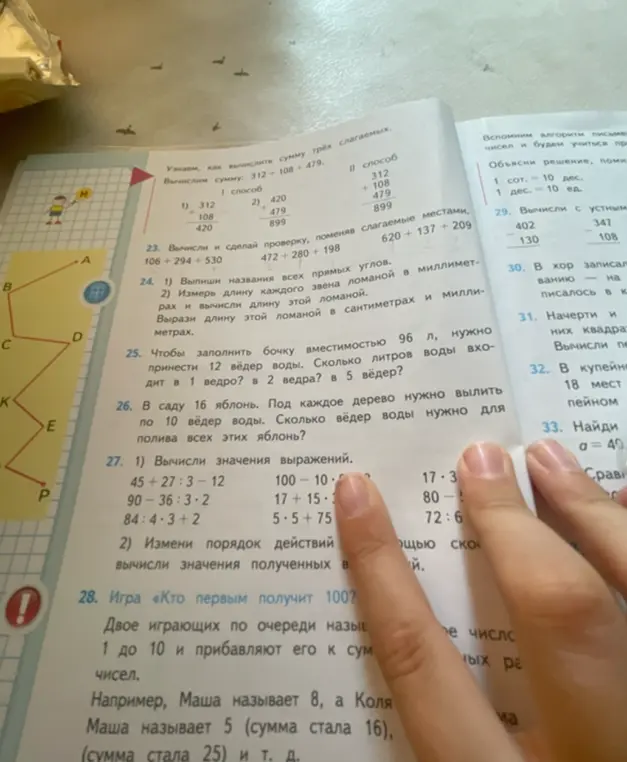 Узнаем, как вычислить сумму трёх слагаемых.
Вычислим сумму: 312 + 108 + 479.
I способ
II способ
1) 312
+ 108
420
2) 420
+ 479
899
312
+ 108
479
899
23. Вычисли и сделай проверку, поменяв слагаемые местами.
106 + 294 + 530 472 + 280 + 198 620 + 137 + 209
24. 1) Выпиши названия всех прямых углов.
2) Измерь длину каждого звена ломаной в миллимет-
рах и вычисли длину этой ломаной.
Вырази длину этой ломаной в сантиметрах и милли-
метрах.
25. Чтобы заполнить бочку вместимостью 96 л, нужно
принести 12 вёдер воды. Сколько литров воды вхо-
дит в 1 ведро? в 2 ведра? в 5 вёдер?
26. В саду 16 яблонь. Под каждое дерево нужно вылить
по 10 вёдер воды. Сколько вёдер воды нужно для
полива всех этих яблонь?
27. 1) Вычисли значения выражений.
45 + 27 : 3 − 12 100 − 10 · 17 · 3
90 − 36 : 3 · 2 17 + 15 · 80 −
84 : 4 · 3 + 2 5 · 5 + 75 72 : 6
2) Измени порядок действий
вычисли значения полученных
28. Игра «Кто первым получит 100?
Двое играющих по очереди число
1 до 10 и прибавляют его к
чисел.
Например, Маша называет 8, а Коля
Маша называет 5 (сумма стала 16),
(сумма стала 25) и т. д.
М
A
B
C
D
K
E
P
!
Вспомним алгоритм
чисел и будем учиться
Объясни решение,
1 сот. = 10 дес.
1 дес. = 10 ед.
29. Вычисли с
− 402
130
− 347
108
30. В хор
ванию — на
писалось в
31. Начерти и
них
Вычисли
32. В
18 мест
33. Найди
a = 40